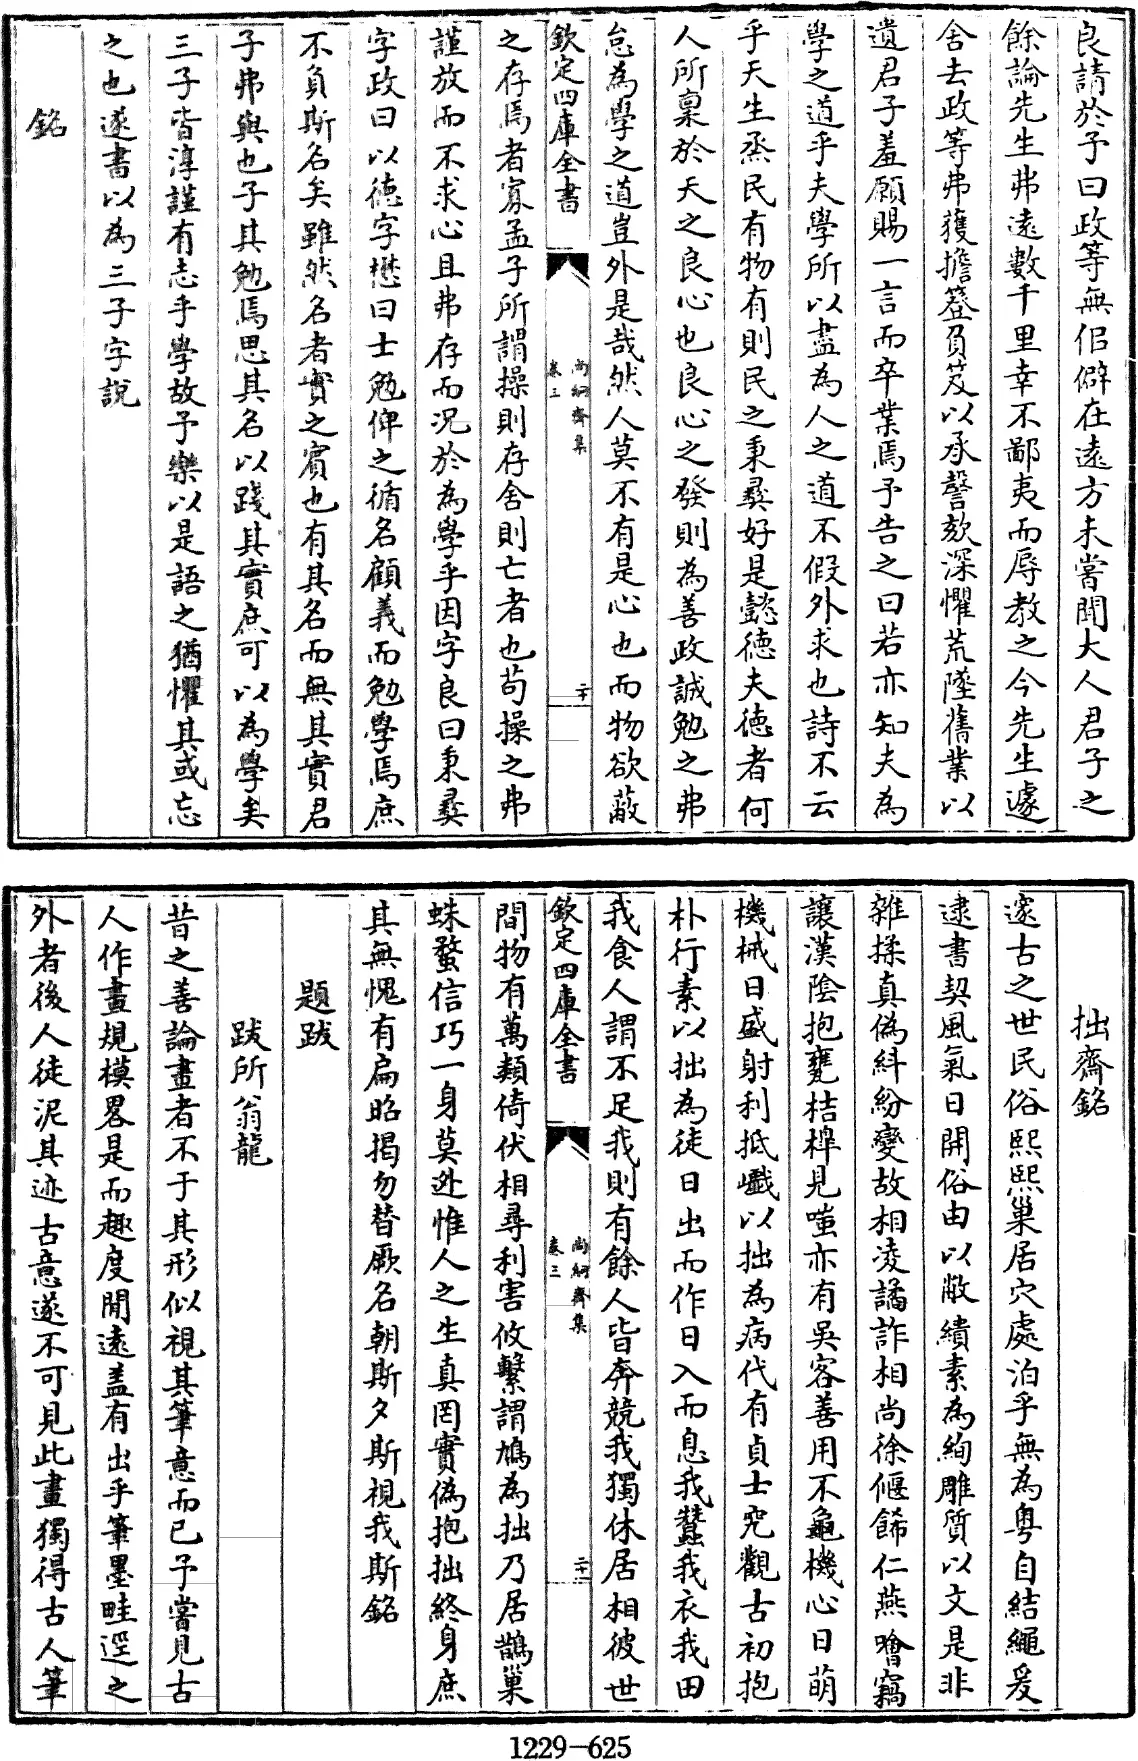 良請於予曰政等無侣僻在遠方未嘗聞大人君子之
餘論先生弗遠數千里幸不鄙夷而辱教之今先生遽
舍去政等弗獲擔簦負笈以承謦欬深懼荒墜舊業以
遺君子羞願賜一言而卒業焉予告之曰若亦知夫為
學之道乎夫學所以盡為人之道不假外求也詩不云
乎天生烝民有物有則民之秉彛好是懿德夫德者何
人所禀於天之良心也良心之發則為善政誠勉之弗
怠為學之道豈外是哉然人莫不有是心也而物欲蔽
欽定四庫全書
尚絅齋集
卷三
二十
之存焉者寡孟子所謂操則存舍則亡者也苟操之弗
謹放而不求心且弗存而况於為學乎因字良曰秉彛
字政曰以德字懋曰士勉俾之循名顧義而勉學焉庶
不負斯名矣雖然名者實之賓也有其名而無其實君
子弗與也子其勉焉思其名以踐其實庶可以為學矣
三子皆淳謹有志乎學故予樂以是語之猶懼其或忘
之也遂書以為三子字説
銘
拙齋銘
邃古之世民俗熙熙巢居穴處泊乎無為粤自結繩爰
逮書契風氣日開俗由以敝繢素為絢雕質以文是非
雜揉真偽糾紛變故相凌譎詐相尚徐偃餙仁燕噲竊
讓漢隂抱甕桔橰見嗤亦有吳客善用不龜機心日萌
機械日盛射利抵巇以拙為病代有貞士究觀古初抱
朴行素以拙為徒日出而作日入而息我蠶我衣我田
我食人謂不足我則有餘人皆奔競我獨休居相彼世
欽定四庫全書
尚絅齋集
卷三
二十一
間物有萬類倚伏相尋利害攸繫謂鳩為拙乃居鵲巢
蛛蝥信巧一身莫逃惟人之生真罔實偽抱拙終身庶
其無愧有扁昭揭勿替厥名朝斯夕斯視我斯銘
題跋
跋所翁龍
昔之善論畫者不于其形似視其筆意而已予嘗見古
人作畫規模畧是而趣度閒遠盖有出乎筆墨畦逕之
外者後人徒泥其迹古意遂不可見此畫獨得古人筆
1229-625